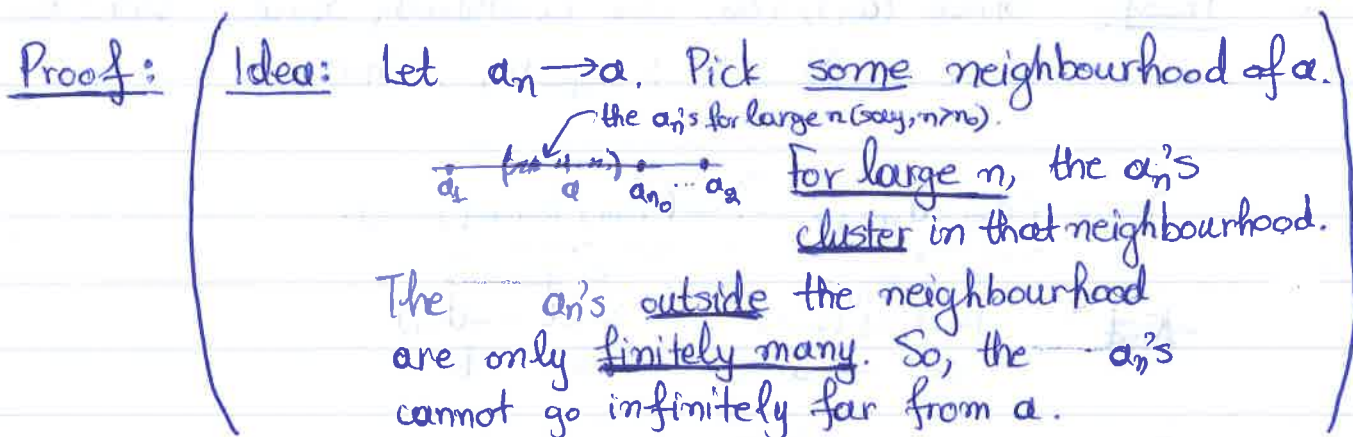 Proof: (Idea: Let aₙ → a. Pick some neighbourhood of a.
the aₙ's for large n (say, n>n₀).
a₁ ( a ) aₙ₀ ... a₂ For large n, the aₙ's
cluster in that neighbourhood.
The aₙ's outside the neighbourhood
are only finitely many. So, the aₙ's
cannot go infinitely far from a. )